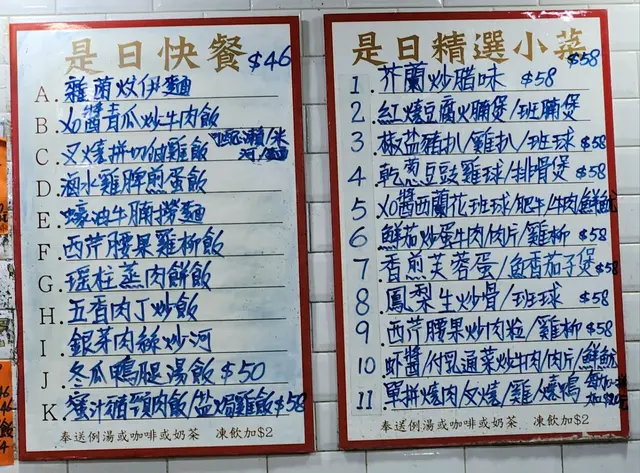 是日快餐 $46
A. 雜菌炆伊麵
B. XO醬青瓜炒牛肉飯
C. 叉燒拼切雞飯 瀨/米 河/麵
D. 滷水雞髀煎蛋飯
E. 蠔油牛腩撈麵
F. 西芹腰果雞柳飯
G. 瑶柱蒸肉餅飯
H. 五香肉丁炒飯
I. 銀芽肉絲炒河
J. 冬瓜鴨腿湯飯 $50
K. 蜜汁豬頸肉飯/盐焗雞飯 $58
奉送例湯或咖啡或奶茶 凍飲加$2
是日精選小菜 $58
1. 芥蘭炒腊味 $58
2. 紅燒豆腐火腩煲/班腩煲
3. 椒盐豬扒/雞扒/班球 $58
4. 乾葱豆豉雞球/排骨煲
5. XO醬西蘭花班球/肥牛/牛肉/鮮魷
6. 鮮茄炒蛋牛肉/肉片/雞柳 $58
7. 香煎芙蓉蛋/魚香茄子煲 $58
8. 鳳梨生炒骨/班球 $58
9. 西芹腰果炒肉粒/雞柳 $58
10 虾醬/付乳通菜炒牛肉/肉片/鮮魷
11. 單拼燒肉/叉燒/雞/燒鴨
奉送例湯或咖啡或奶茶 凍飲加$2